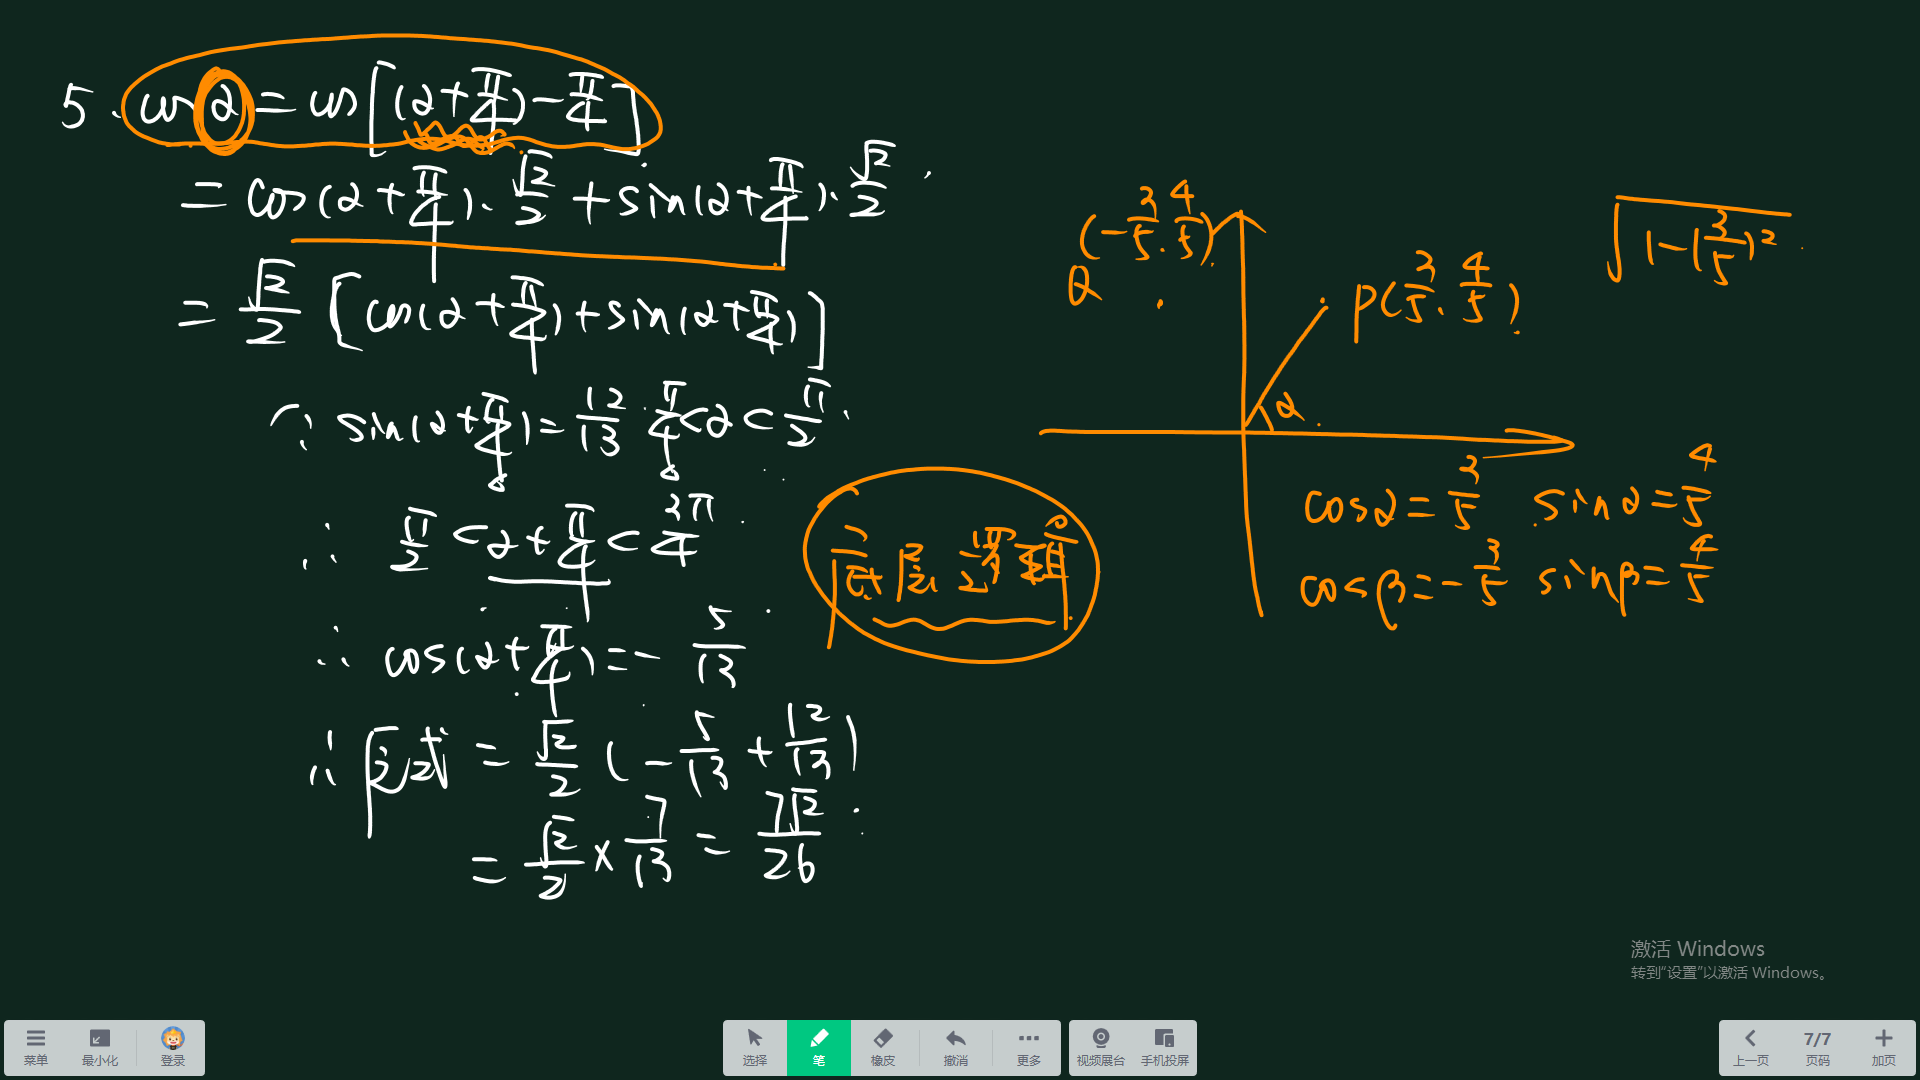 5. cosα = cos[(α+π/4)-π/4]
= cos(α+π/4)·√2/2 + sin(α+π/4)·√2/2
= √2/2 [cos(α+π/4)+sin(α+π/4)]
∵ sin(α+π/4) = 12/13 π/4<α<π/2
∴ π/2 < α+π/4 < 3π/4
∴ cos(α+π/4) = -5/13
∴ 原式 = √2/2 (-5/13 + 12/13)
= √2/2 × 7/13 = 7√2/26
(-3/5, 4/5)
Q
P(3/5, 4/5)
√1-(3/5)²
α
cosα = 3/5 sinα = 4/5
cosβ = -3/5 sinβ = 4/5
激活 Windows
转到“设置”以激活 Windows。
菜单 最小化 登录 选择 笔 橡皮 撤消 更多 视频展台 手机投屏 上一页 7/7 页码 加页